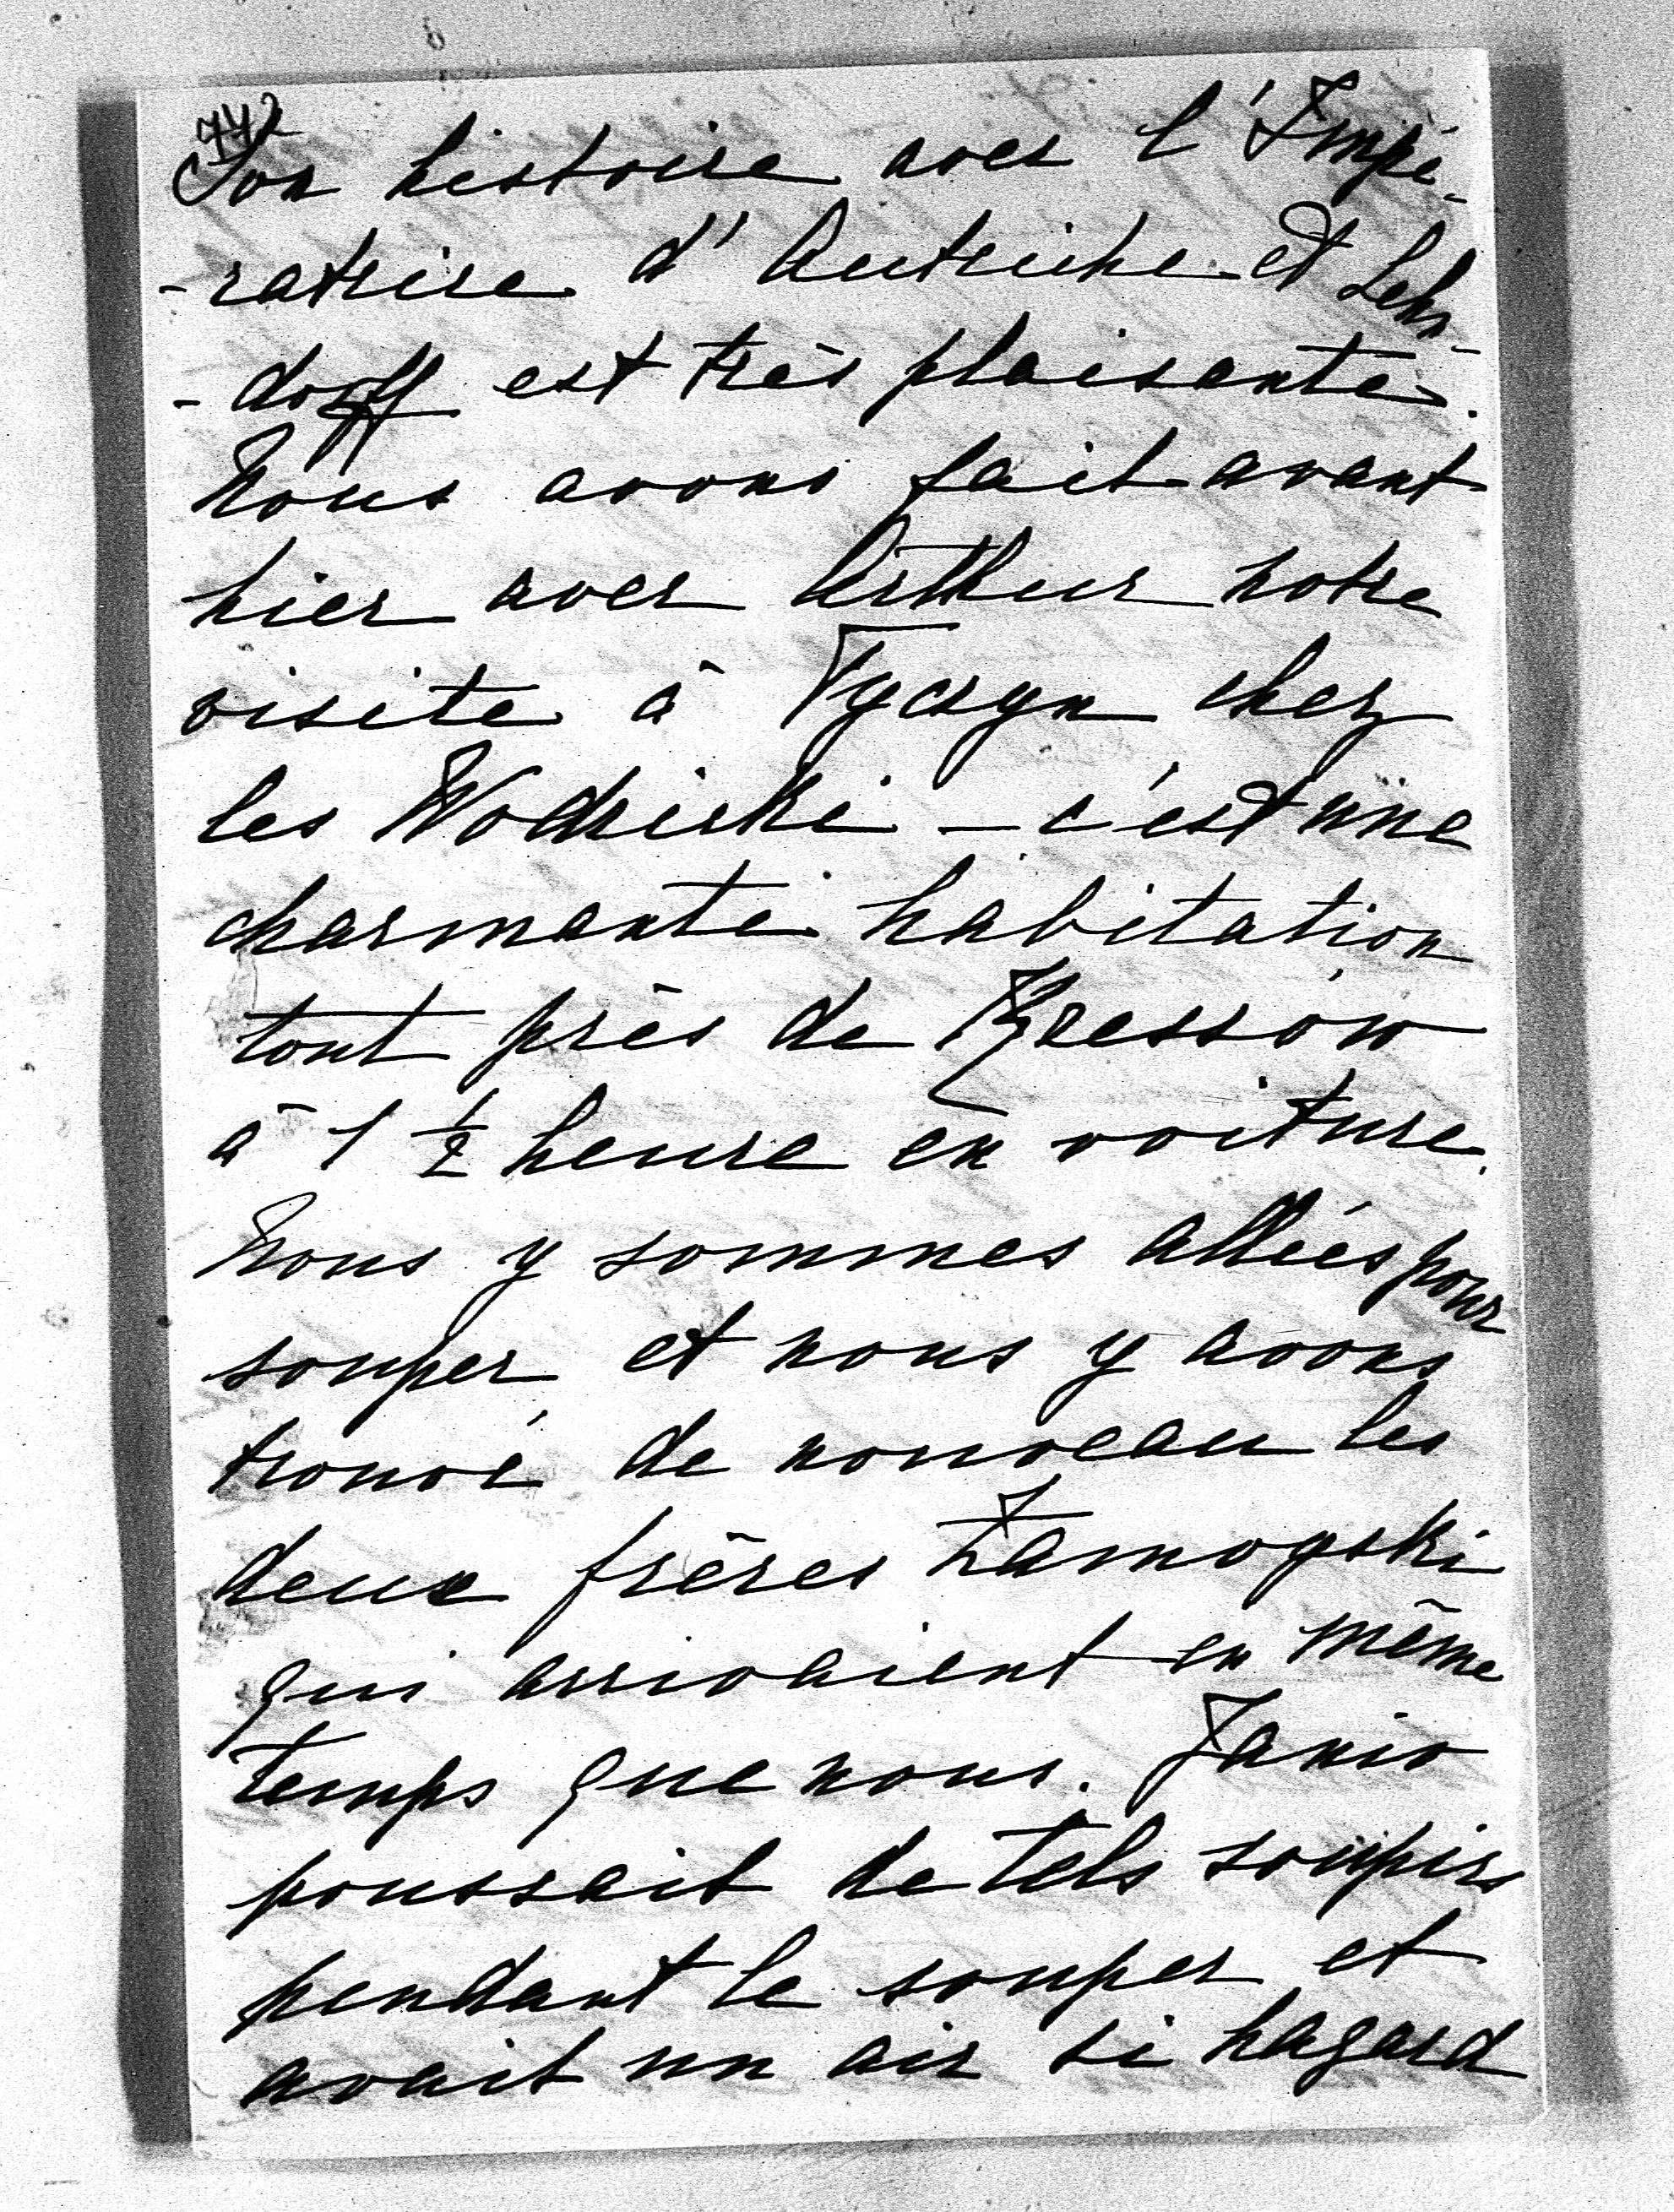 742
Son histoire avec l'Impé-
-ratrice d'Autriche et Lehn-
-dorff est très plaisante.
Nous avons fait avant
hier avec Arthur notre
visite à Tyczyn chez
les Wodzicki – c'est une
charmante habitation
tout près de Rzeszów
à 1 1/2 heure en voiture.
Nous y sommes allées pour
souper et nous y avons
trouvé de nouveau les
deux frères Zamoyski
qui arrivaient en même
temps que nous. Janio
poussait de tels soupirs
pendant le souper et
avait un air si hagard